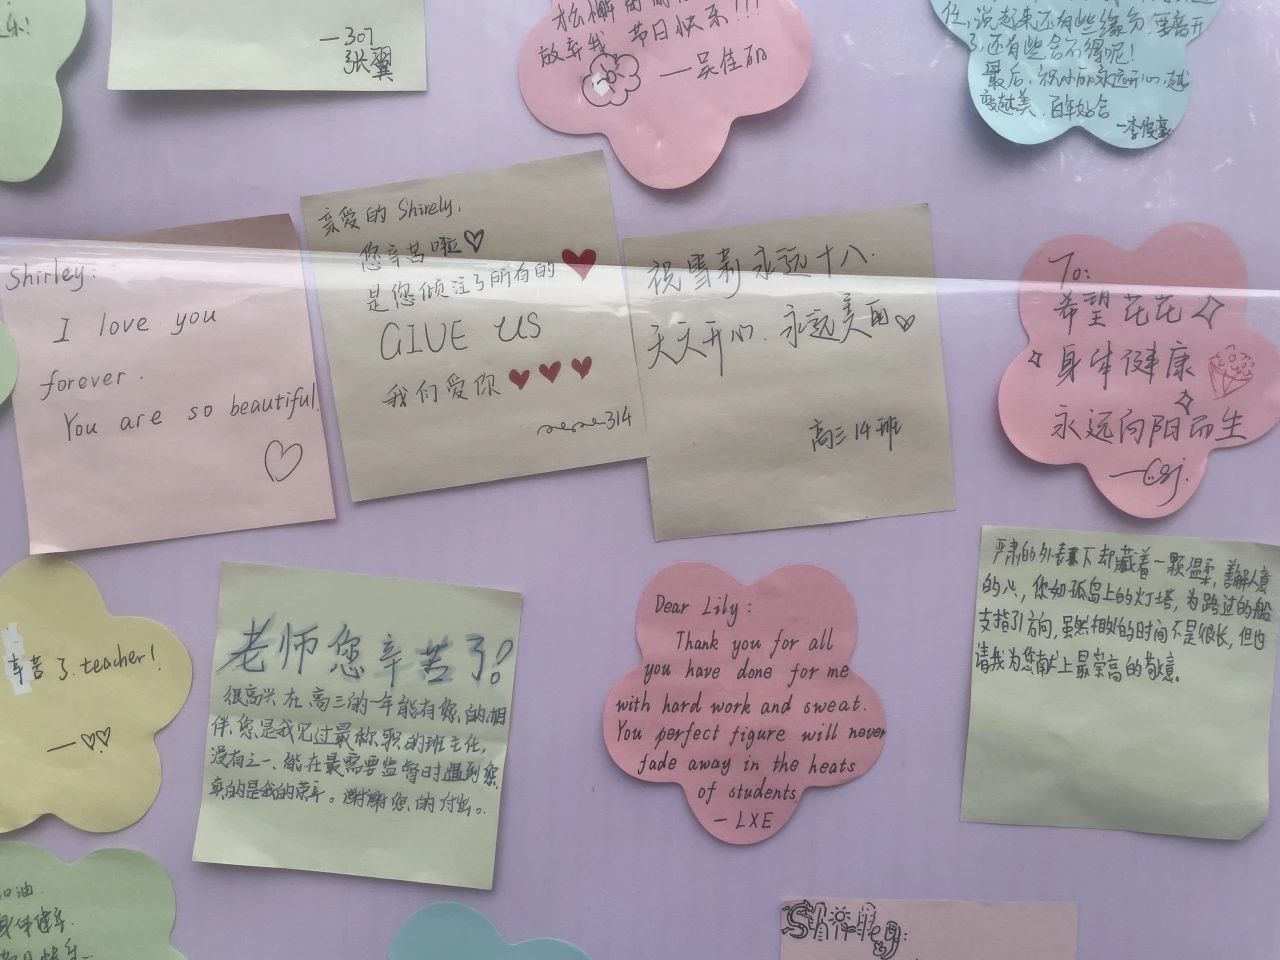 乐!
—307
张翼
放弃我 节日快乐!!!
—吴佳
位,说起来还有些缘分,要离开
了,还有些舍不得呢!
最后,祝 永远开心,越
变越美,百年好合
—李俊豪
Shirley:
I love you
forever.
You are so beautiful.
亲爱的 Shirely,
您辛苦啦♡
是您倾注了所有的 ♥
GIVE US
我们爱你 ♥ ♥ ♥
314
祝雪莉永远十八.
天天开心.永远美丽♡
高三14班
To:
希望花花
身体健康
永远向阳而生
辛苦了.teacher!
—♡♡
老师您辛苦了!
很高兴在高三的一年能有您的相
伴.您是我见过最称职的班主任,
没有之一、能在最需要监督时遇到您
真的是我的荣幸。谢谢您的付出。
Dear Lily:
Thank you for all
you have done for me
with hard work and sweat.
You perfect figure will never
fade away in the heats
of students
— LXE
严肃的外表下却藏着一颗温柔,善解人意
的心,您如孤岛上的灯塔,为路过的船
支指引方向,虽然相处的时间不是很长,但也
请我为您献上最崇高的敬意。
加油.
身体健康.
节日快乐.
Shirley: